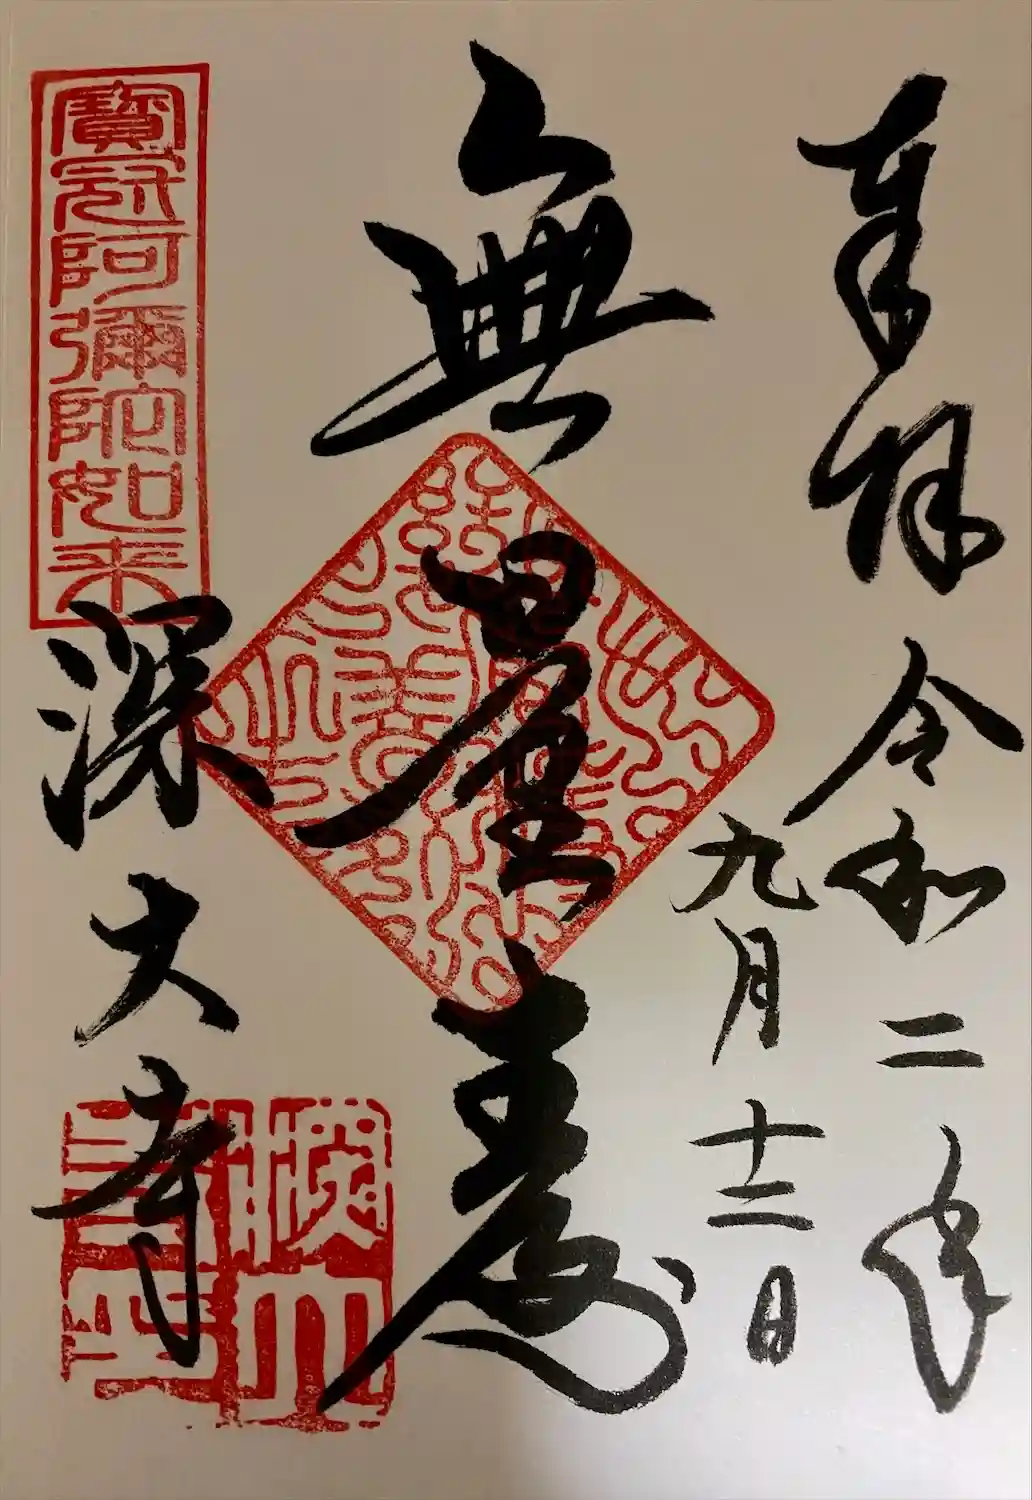 奉拝 令和二年
九月十二日
無量壽
寶冠阿彌陀如来
深大寺